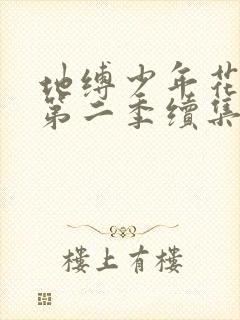 地缚少年花
第二季续集
楼上有楼